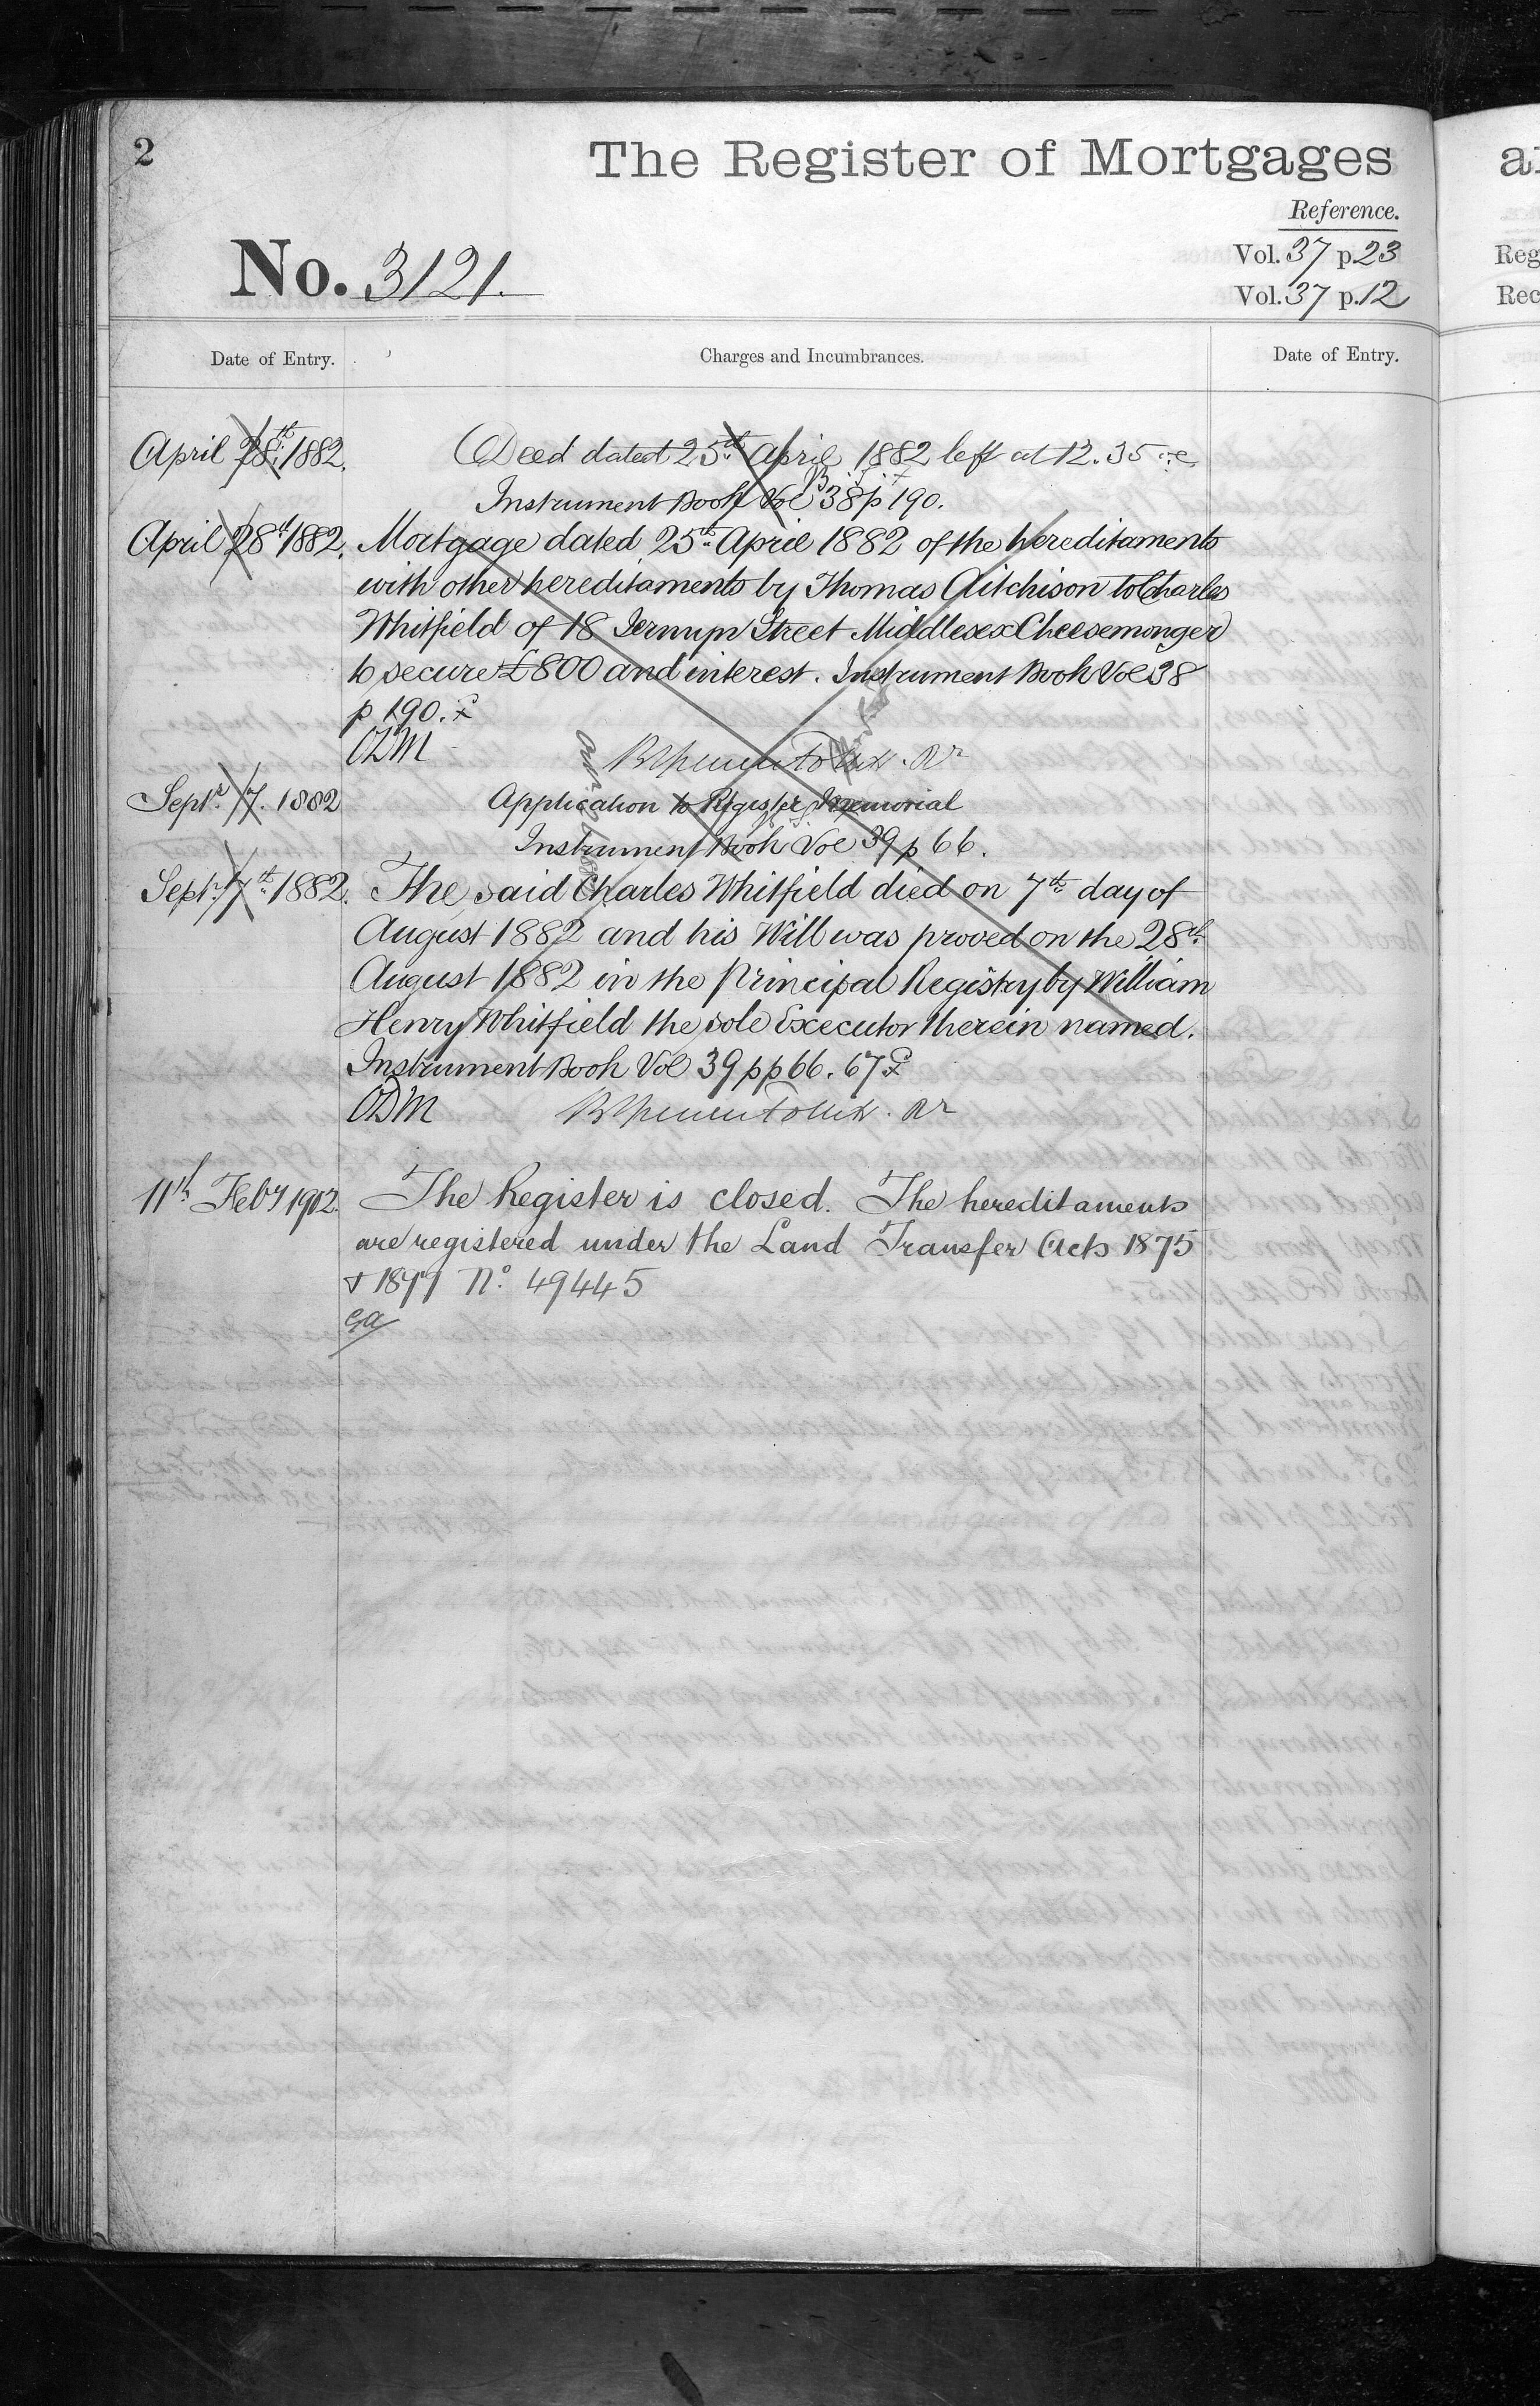 2
The Register of Mortgages
Reference.
No. 3121.
Vol. 37 p. 23
Vol. 37 p. 12
Date of Entry.
Charges and Incumbrances.
Date of Entry.
April 28th 1882.
Deed dated 25th April 1882 left at 12.35
Instrument Book Vol 38 p 190.
April 28th 1882. Mortgage dated 25th April 1882 of the hereditaments
with other hereditaments by Thomas Aitchison to Charles
Whitfield of 18 Jermyn Street Middlesex Cheesemonger
to secure £800 and interest. Instrument Book Vol 38
p 190.
ODM
Sept. 7. 1882
Application to Register Memorial
Instrument Book Vol 39 p 66.
Sept. 7th 1882. The said Charles Whitfield died on 7th day of
August 1882 and his Will was proved on the 28th
August 1882 in the Principal Registry by William
Henry Whitfield the sole Executor therein named.
Instrument Book Vol 39 pp 66. 67
ODM
11th Feby 1902. The Register is closed. The hereditaments
are registered under the Land Transfer Acts 1875
& 1897 No. 49445
a
Reg
Rec